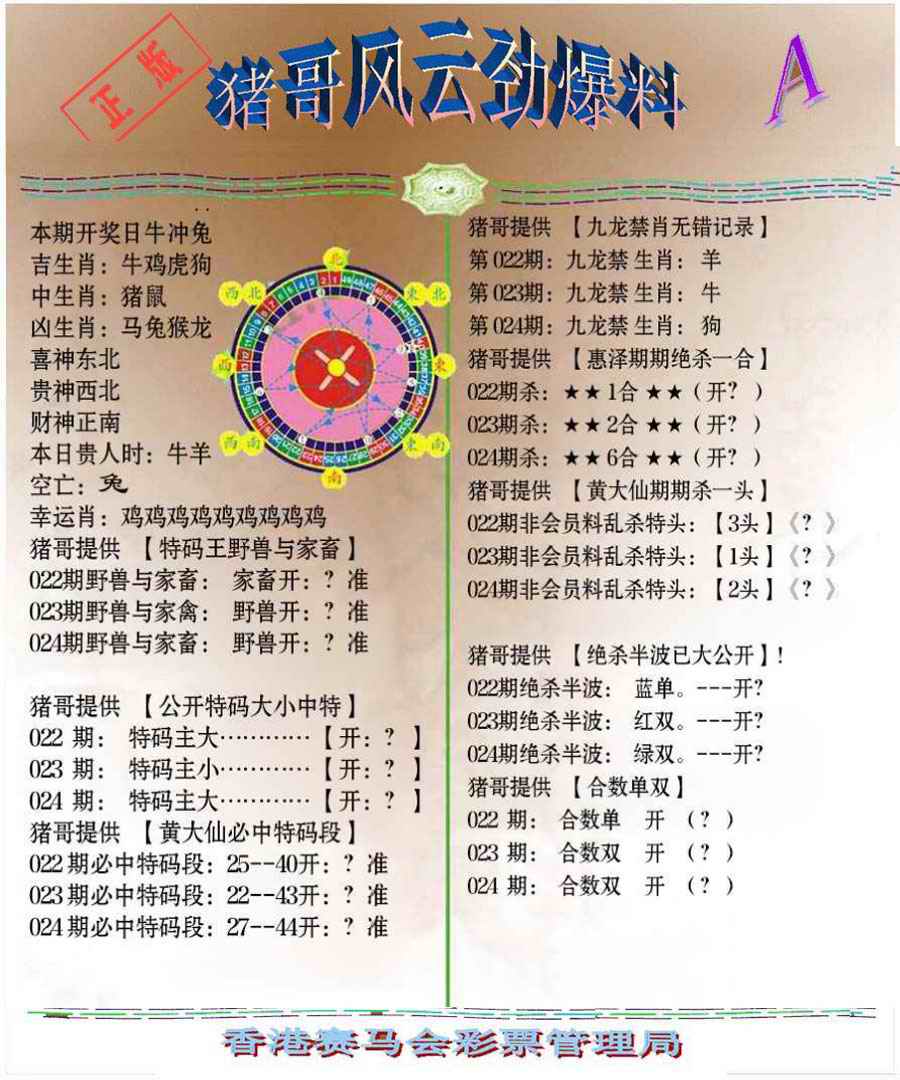 正版
猪哥风云劲爆料
A
本期开奖日牛冲兔
吉生肖：牛鸡虎狗
中生肖：猪鼠
凶生肖：马兔猴龙
喜神东北
贵神西北
财神正南
本日贵人时：牛羊
空亡：兔
幸运肖：鸡鸡鸡鸡鸡鸡鸡鸡鸡
猪哥提供 【特码王野兽与家畜】
022期野兽与家畜： 家畜开：？准
023期野兽与家禽： 野兽开：？准
024期野兽与家畜： 野兽开：？准
猪哥提供 【公开特码大小中特】
022 期： 特码主大…………【开：？ 】
023 期： 特码主小…………【开：？ 】
024 期： 特码主大…………【开：？ 】
猪哥提供 【黄大仙必中特码段】
022期必中特码段：25--40开：？准
023期必中特码段：22--43开：？准
024期必中特码段：27--44开：？准
北
西北
東北
西
東
西南
東南
南
猪哥提供 【九龙禁肖无错记录】
第022期：九龙禁 生肖： 羊
第023期：九龙禁 生肖： 牛
第024期：九龙禁 生肖： 狗
猪哥提供 【惠泽期期绝杀一合】
022期杀：★★1合★★（开？ ）
023期杀：★★2合★★（开？ ）
024期杀：★★6合★★（开？ ）
猪哥提供 【黄大仙期期杀一头】
022期非会员料乱杀特头：【3头】《？ 》
023期非会员料乱杀特头：【1头】《？ 》
024期非会员料乱杀特头：【2头】《？ 》
猪哥提供 【绝杀半波已大公开】！
022期绝杀半波： 蓝单。---开？
023期绝杀半波： 红双。---开？
024期绝杀半波： 绿双。---开？
猪哥提供 【合数单双】
022 期： 合数单 开 （？）
023 期： 合数双 开 （？）
024 期： 合数双 开 （？）
香港赛马会彩票管理局